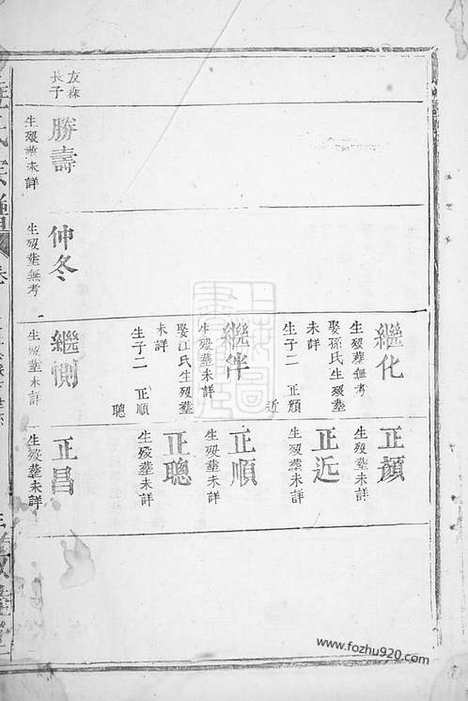 友森
長子
勝壽
生歿葬未詳
仲冬
生歿葬無考
繼化
生歿葬無考
娶孫氏生歿葬
未詳
生子二 正顏
近
繼伴
生歿葬未詳
娶江氏生歿葬
未詳
生子二 正順
聰
繼惻
生歿葬未詳
正顏
生歿葬無考
正近
生歿葬未詳
正順
生歿葬未詳
正聰
生歿葬未詳
正昌
生歿葬未詳
www.fozhu920.com